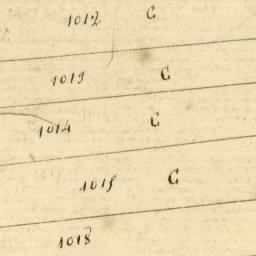 1012 C
1013 C
1014 C
1015 C
1018